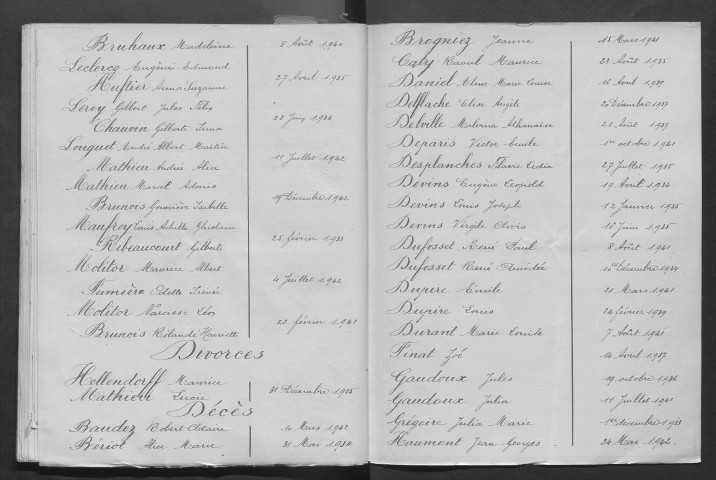 Bruhaux Madeleine 8 Août 1940
Leclercq Eugène Edmond
Huftier Anna Suzanne 27 Avril 1935
Leroy Gilbert Jules
Chauvin Gilberte Irma 23 Juin 1934
Louguet André Albert Martin
Mathieu Andrée Alice 11 Juillet 1942
Mathieu Marcel Adonis
Brunois Geneviève Isabelle 19 Décembre 1942
Maufroy Louis Achille Ghislain
Ribeaucourt Gilberte 25 février 1933
Molitor Maurice Albert
Fumière Odette Irénée 4 Juillet 1942
Molitor Narcisse Léon
Brunois Rolande Henriette 22 février 1941
Divorces
Hellendorff Maurice
Mathieu Lucie 31 Décembre 1935
Décès
Baudez Robert 4 Mars 1942
Bériot Alice Marie 31 Mai 1934
Brogniez Jeanne 15 Mars 1941
Caly Raoul Maurice 23 Août 1935
Daniel Marie Louise 16 Avril 1939
Delflache Elise Angèle 20 Décembre 1937
Delville Malvina Athanaïse 28 Août 1937
Deparis Victor Emile 1er octobre 1941
Desplanches Flavie Lidia 27 Juillet 1935
Devins Eugène Léopold 19 Avril 1934
Devins Louis Joseph 12 Janvier 1935
Devins Virgile Clovis 10 Juin 1935
Dufosset René Paul 8 Août 1941
Dufosset René Amédée 10 Décembre 1934
Dupire Emile 21 Mars 1941
Dupire Louis 24 février 1939
Durant Marie Louise 7 Août 1941
Finat Zoé 14 Avril 1937
Gaudoux Jules 19 octobre 1936
Gaudoux Julia 11 Juillet 1941
Grégoire Julia Marie 1er décembre 1933
Haumont Jean Georges 24 Mai 1942